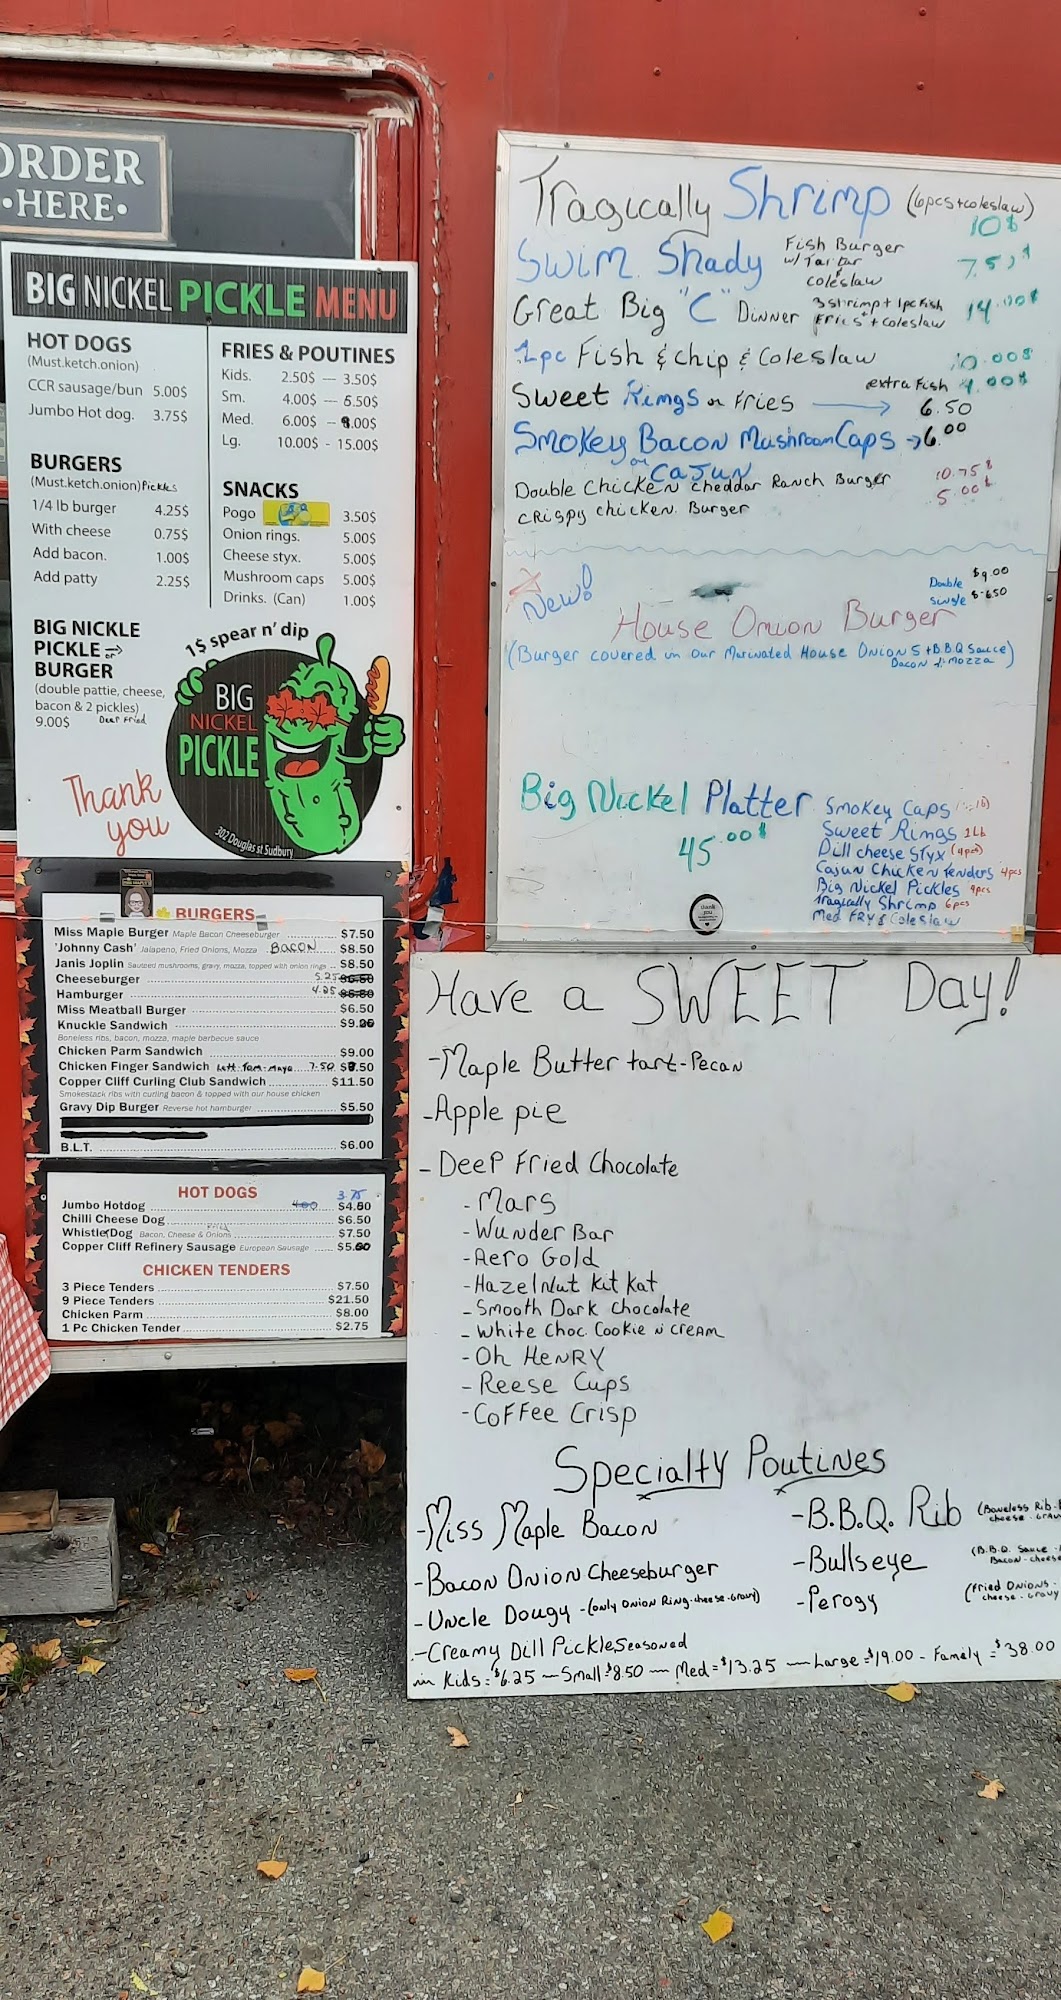 ORDER
•HERE•
BIG NICKEL PICKLE MENU
HOT DOGS
(Must.ketch.onion)
CCR sausage/bun 5.00$
Jumbo Hot dog. 3.75$
BURGERS
(Must.ketch.onion)Pickles
1/4 lb burger 4.25$
With cheese 0.75$
Add bacon. 1.00$
Add patty 2.25$
BIG NICKLE
PICKLE or
BURGER
(double pattie, cheese,
bacon & 2 pickles)
9.00$ Deep Fried
Thank
you
FRIES & POUTINES
Kids. 2.50$ — 3.50$
Sm. 4.00$ — 5.50$
Med. 6.00$ — 9.00$
Lg. 10.00$ - 15.00$
SNACKS
Pogo 3.50$
Onion rings. 5.00$
Cheese styx. 5.00$
Mushroom caps 5.00$
Drinks. (Can) 1.00$
1$ spear n' dip
BIG
NICKEL
PICKLE
302 Douglas st Sudbury
BURGERS
Miss Maple Burger Maple Bacon Cheeseburger $7.50
'Johnny Cash' Jalapeno, Fried Onions, Mozza BACON $8.50
Janis Joplin Sauteed mushrooms, gravy, mozza, topped with onion rings $8.50
Cheeseburger 5.25
Hamburger 4.25
Miss Meatball Burger $6.50
Knuckle Sandwich
Boneless ribs, bacon, mozza, maple barbecue sauce
Chicken Parm Sandwich $9.00
Chicken Finger Sandwich Lett. Tom. Mayo 7.50
Copper Cliff Curling Club Sandwich $11.50
Smokestack ribs with curling bacon & topped with our house chicken
Gravy Dip Burger Reverse hot hamburger $5.50
B.L.T. $6.00
HOT DOGS
3.75
Jumbo Hotdog 4.00 $4.50
Chilli Cheese Dog $6.50
Whistler Dog Bacon, Cheese & Fried Onions $7.50
Copper Cliff Refinery Sausage European Sausage $5.00
CHICKEN TENDERS
3 Piece Tenders $7.50
9 Piece Tenders $21.50
Chicken Parm $8.00
1 Pc Chicken Tender $2.75
Tragically Shrimp (6pcs+coleslaw)
10$
Swim Shady Fish Burger
w/ Tartar
coleslaw
7.5
Great Big "C" Dinner 3 shrimp + 1pc Fish
Fries + coleslaw 14.00$
1pc Fish & chip & Coleslaw 10.00$
extra Fish 4.00$
Sweet Rings or Fries → 6.50
Smokey Bacon Mushroom Caps → 6.00
or CAJUN
Double Chicken Cheddar Ranch Burger 10.75$
CRispy chicken Burger 5.00$
New!
Double $9.00
Single $6.50
House Onion Burger
(Burger covered in our Marinated House Onions + B.B.Q Sauce)
Bacon & Mozza
Big Nickel Platter
45.00$
Smokey Caps
Sweet Rings 1Lb
Dill cheese Styx (4pcs)
Cajun Chicken tenders 4pcs
Big Nickel Pickles 4pcs
Tragically Shrimp 6pcs
Med FRY & Coleslaw
thank
you
Have a SWEET Day!
-Maple Butter tart-Pecan
-Apple pie
-Deep Fried Chocolate
-Mars
-Wunder Bar
-Aero Gold
-Hazelnut Kit Kat
-Smooth Dark Chocolate
-White Choc. Cookie n Cream
-Oh HENRY
-Reese Cups
-Coffee Crisp
Specialty Poutines
-Miss Maple Bacon
-Bacon Onion Cheeseburger
-Uncle Dougy -(only Onion Ring-cheese-Gravy)
-Creamy Dill Pickle Seasoned
-B.B.Q. Rib (Boneless Rib
cheese - Gravy
-Bullseye (B.B.Q. Sauce
Bacon-cheese
-Perogy (Fried Onions-
cheese-gravy
in Kids=$6.25 — Small=$8.50 — Med=$13.25 — Large=$19.00 - Family=$38.00